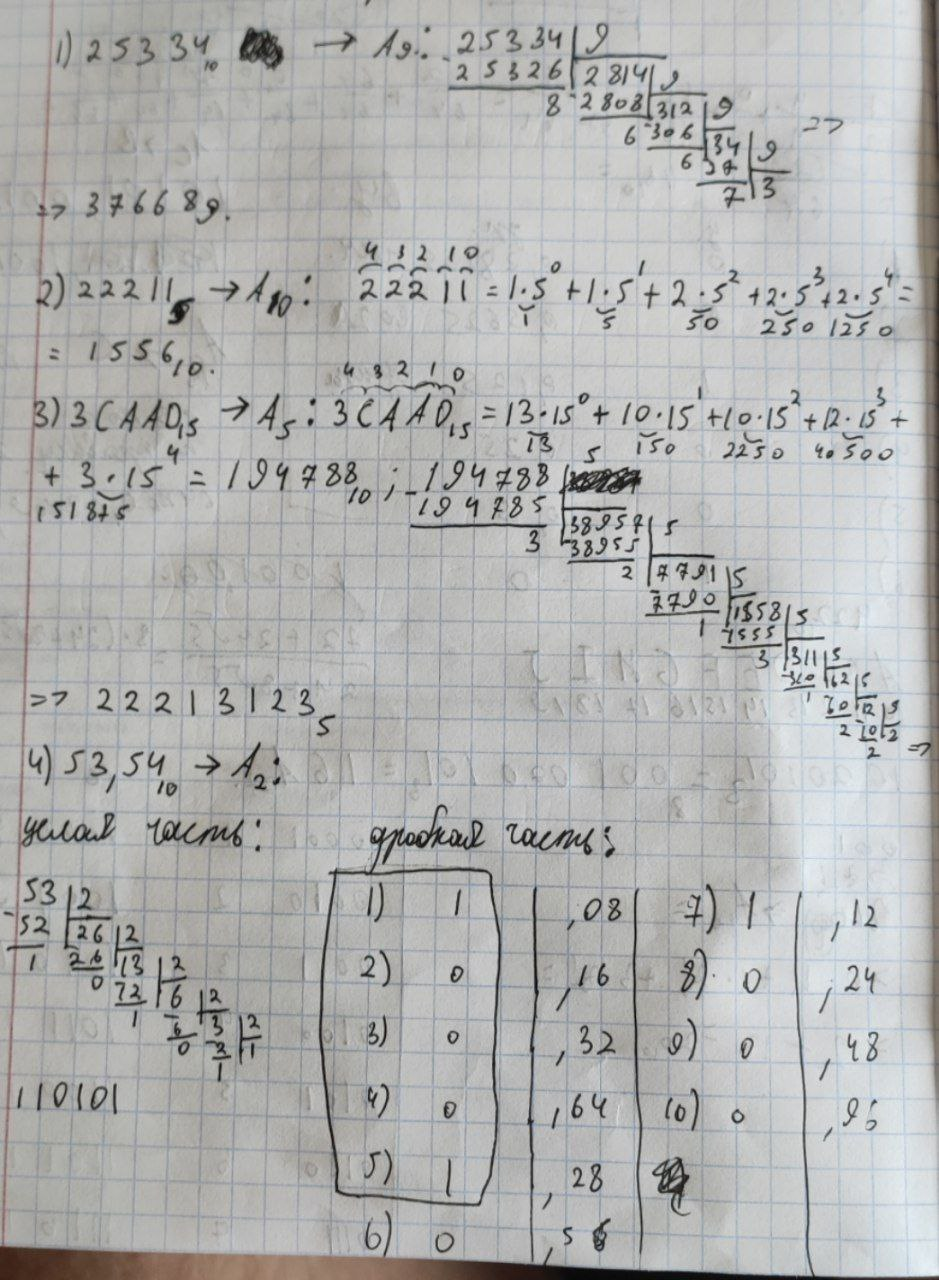 1) 25334₁₀ → A₉: 25334 | 9
25326 | 2814 | 9
8 - 2808 | 312 | 9 =>
6 - 306 | 34 | 9
6 27 | 3
7
=> 37668₉.
2) 22211₅ → A₁₀: 4 3 2 1 0
22211 = 1·5⁰ + 1·5¹ + 2·5² + 2·5³ + 2·5⁴ =
1 5 50 250 1250
= 1556₁₀.
4 3 2 1 0
3) 3CAAD₁₅ → A₅: 3CAAD₁₅ = 13·15⁰ + 10·15¹ + 10·15² + 12·15³ +
13 150 2250 40500
+ 3·15⁴ = 194788₁₀; - 194788 | 5
151875 194785 | 38957 | 5
3 38955 | 7791 | 5
2 7790 | 1558 | 5
1 1555 | 311 | 5
3 - 310 | 62 | 5
1 60 | 12 | 5
2 - 10 | 2
2 =>
=> 222131123₅
4) 53,54₁₀ → A₂:
целая часть: дробная часть:
- 53 | 2
52 | 26 | 2
1 26 | 13 | 2
0 12 | 6 | 2
1 - 6 | 3 | 2
0 - 2 | 1
1
110101
1) 1 ,08 7) 1 ,12
2) 0 ,16 8) 0 ,24
3) 0 ,32 9) 0 ,48
4) 0 ,64 10) 0 ,96
5) 1 ,28
6) 0 ,56